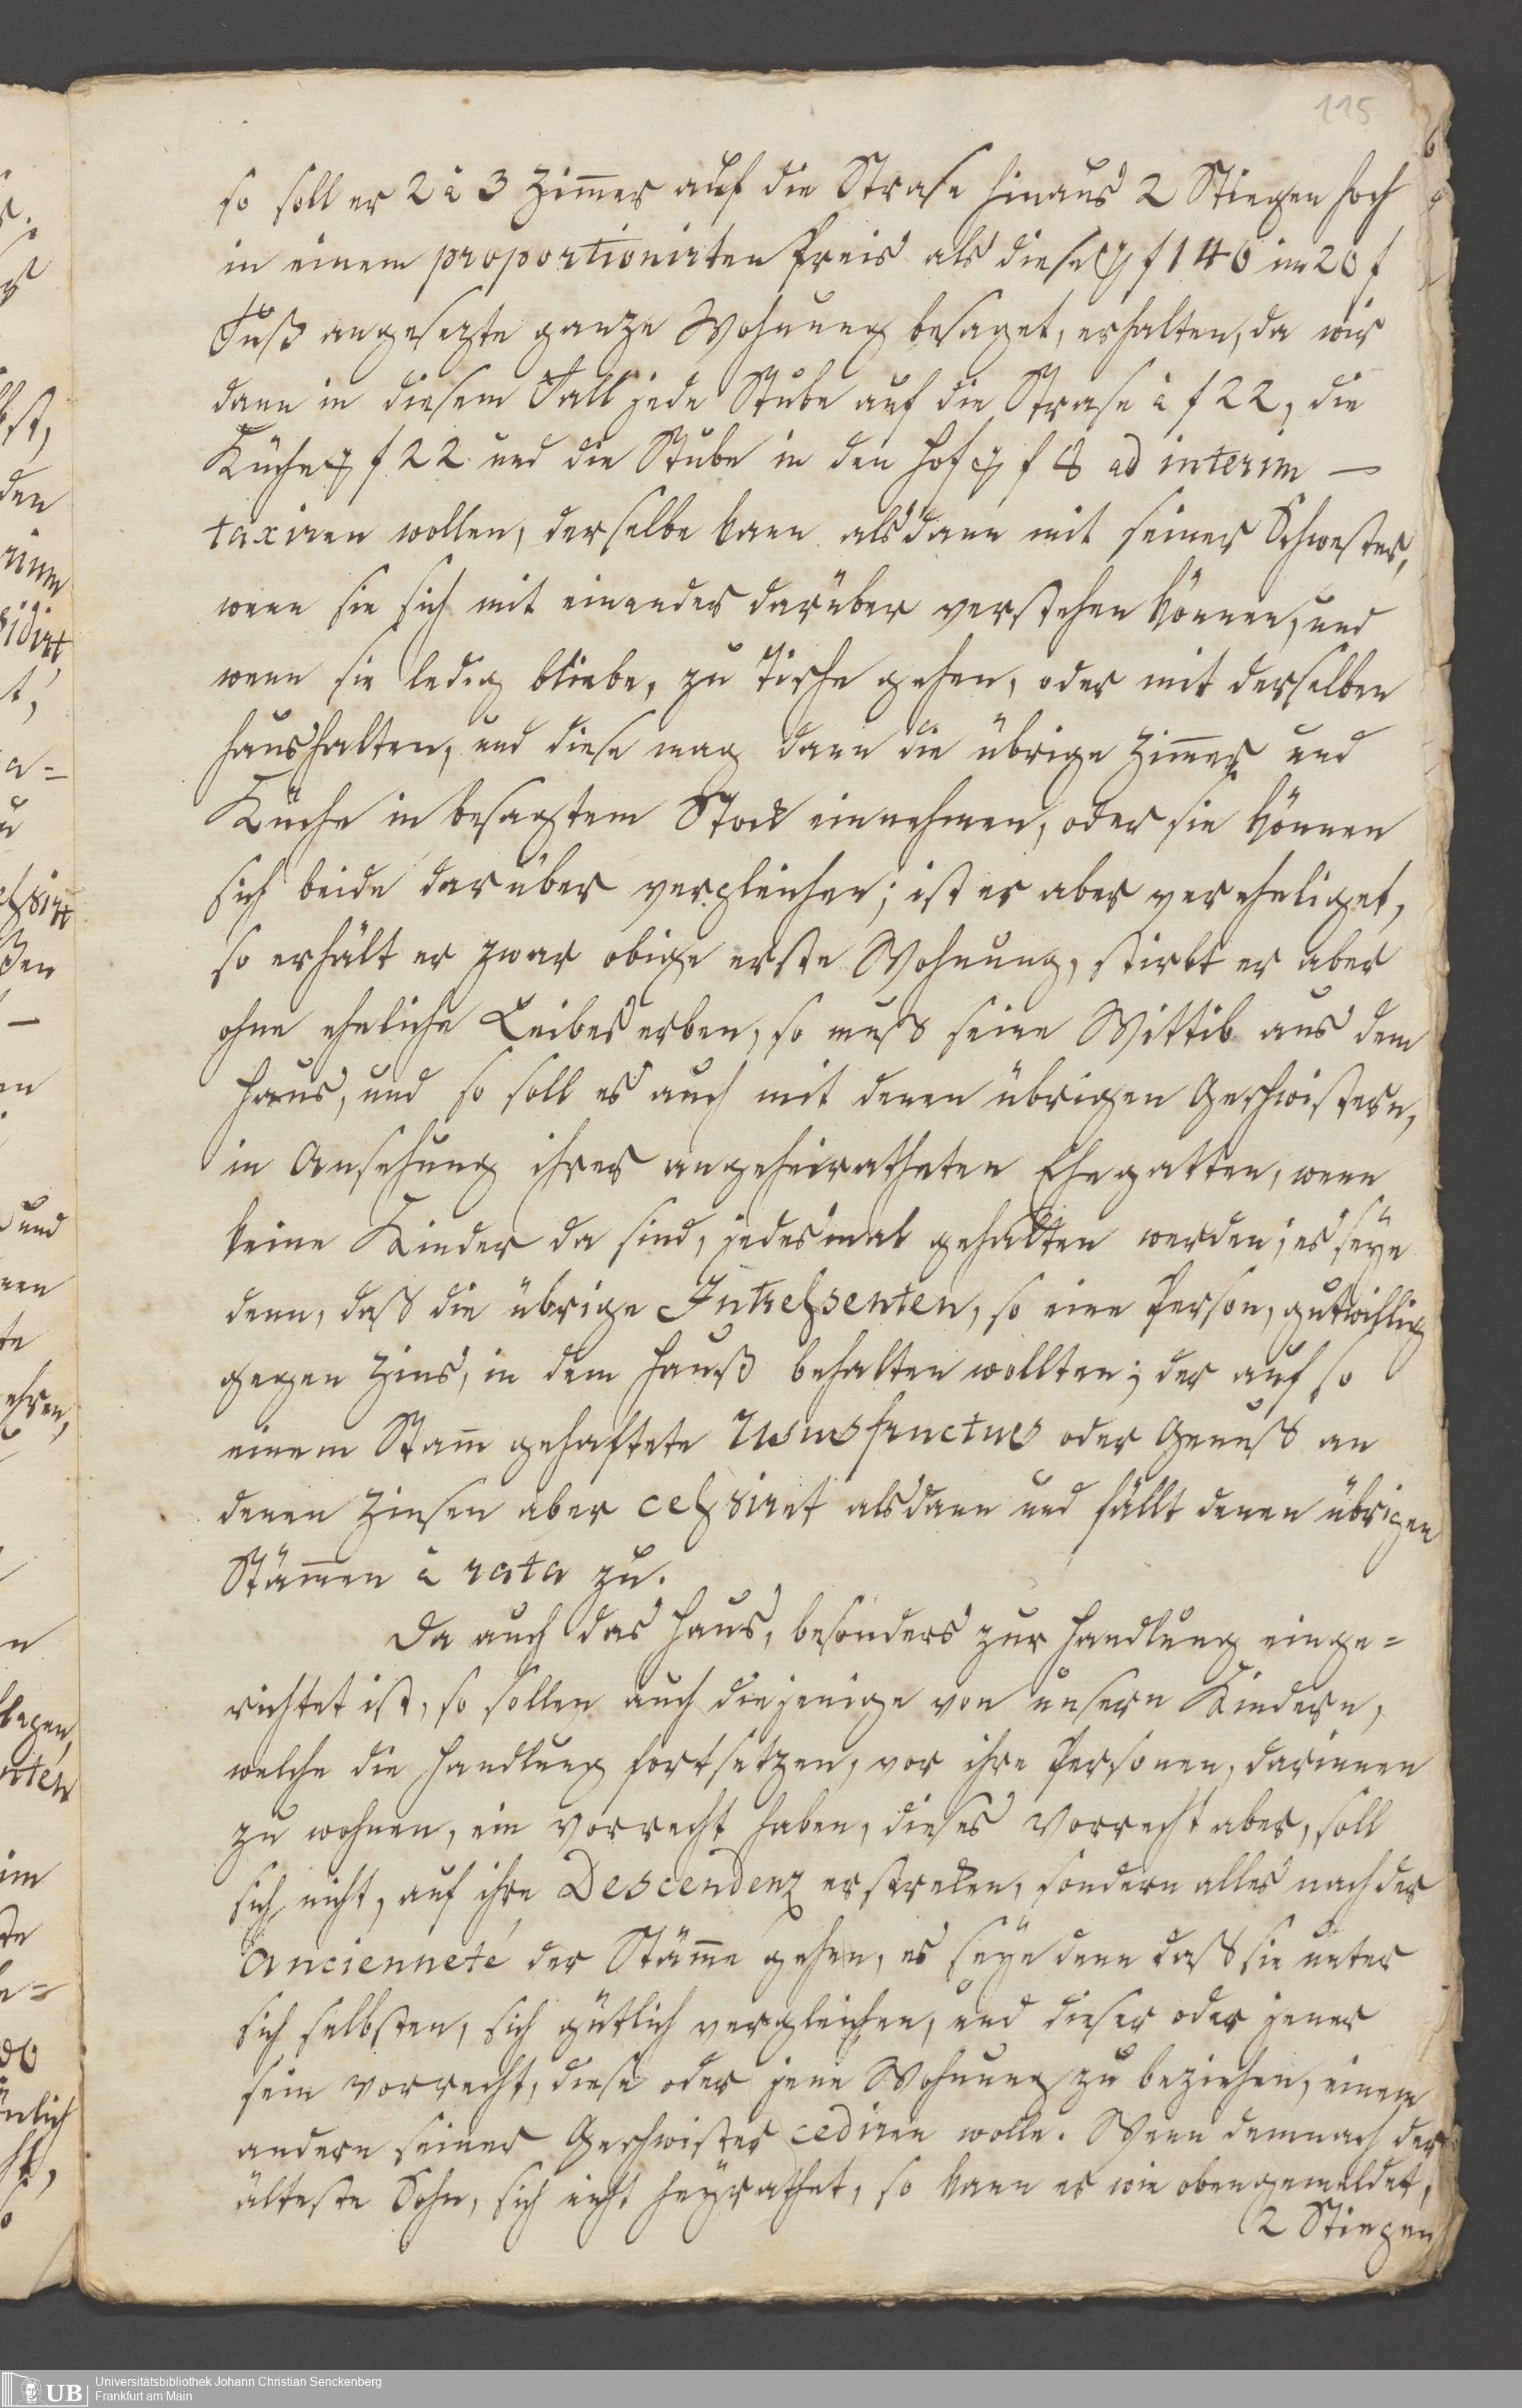 115
so soll er 2 à 3 Zim̅er auf die Strase hinaus 2 Stiegen hoch
in einem proportionirten Preis als diese f 140 im 20 f
Fuß angesezte ganze Wohnung besaget, erhalten, da wir
dann in diesem Fall jede Stube auf die Strase à f 22, die
Küche f 22 und die Stube in den Hof f 8 ad interim —
taxiren wollen, derselbe kann alsdann mit seiner Schwester,
wenn sie sich mit einander darüber verstehen können, und
wenn sie ledig bliebe, zu Tische gehen, oder mit derselben
haushalten, und diese mag dann die übrige Zim̅er und
Küche in besagtem Stock einnehmen, oder sie können
sich beide darüber vergleichen; ist er aber vereheliget,
so erhält er zwar obige erste Wohnung, stirbt er aber
ohne eheliche Leibeserben, so muß seine Wittib aus dem
Haus, und so soll es auch mit denen übrigen Geschwistern,
in Ansehung ihrer angeheiratheten Ehegatten, wenn
keine Kinder da sind, jedesmal gehalten werden; es seye
denn, daß die übrige Intressenten, so eine Person, gutwillig
gegen Zins, in dem Hauß behalten wollten; der auf so
einem Stam̅ gehaftete Ususfructus oder Genuß an
denen Zinsen aber cessiret alsdann und fällt denen übrigen
Stäm̅en à rata zu.
Da auch das Haus, besonders zur Handlung einge=
richtet ist, so sollen auch diejenige von unsern Kindern,
welche die Handlung fortsetzen, vor ihre Personen, darinnen
zu wohnen, ein Vorrecht haben, dieses Vorrecht aber, soll
sich nicht, auf ihre Descendenz erstreken, sondern alles nach der
Ancienneté der Stäm̅e gehen, es seye denn daß sie unter
sich selbsten, sich gütlich vergleichen, und dieser oder jener
sein Vorrecht, diese oder jene Wohnung zu beziehen, einem
andern seiner Geschwister cediren wolle. Wenn demnach der
älteste Sohn, sich nicht heyrathet, so kann er wie obengemeldet,
2 Stiegen
Universitätsbibliothek Johann Christian Senckenberg
Frankfurt am Main
UB